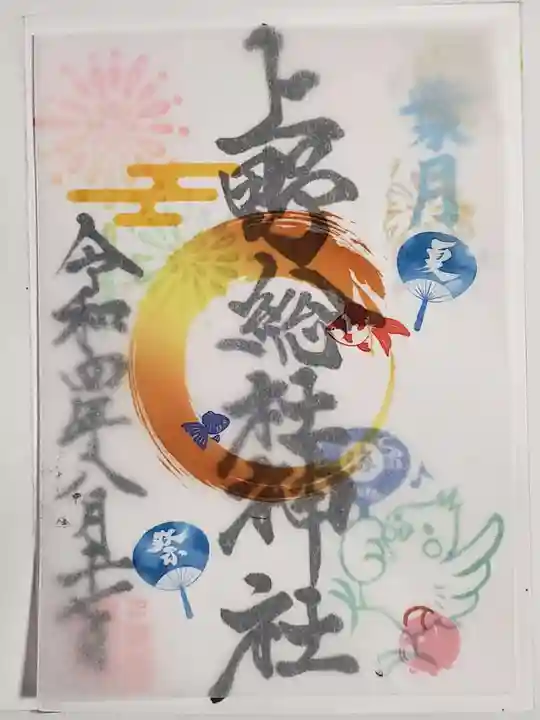 葉月
夏
上野総社神社
祭
令和四年八月十一日